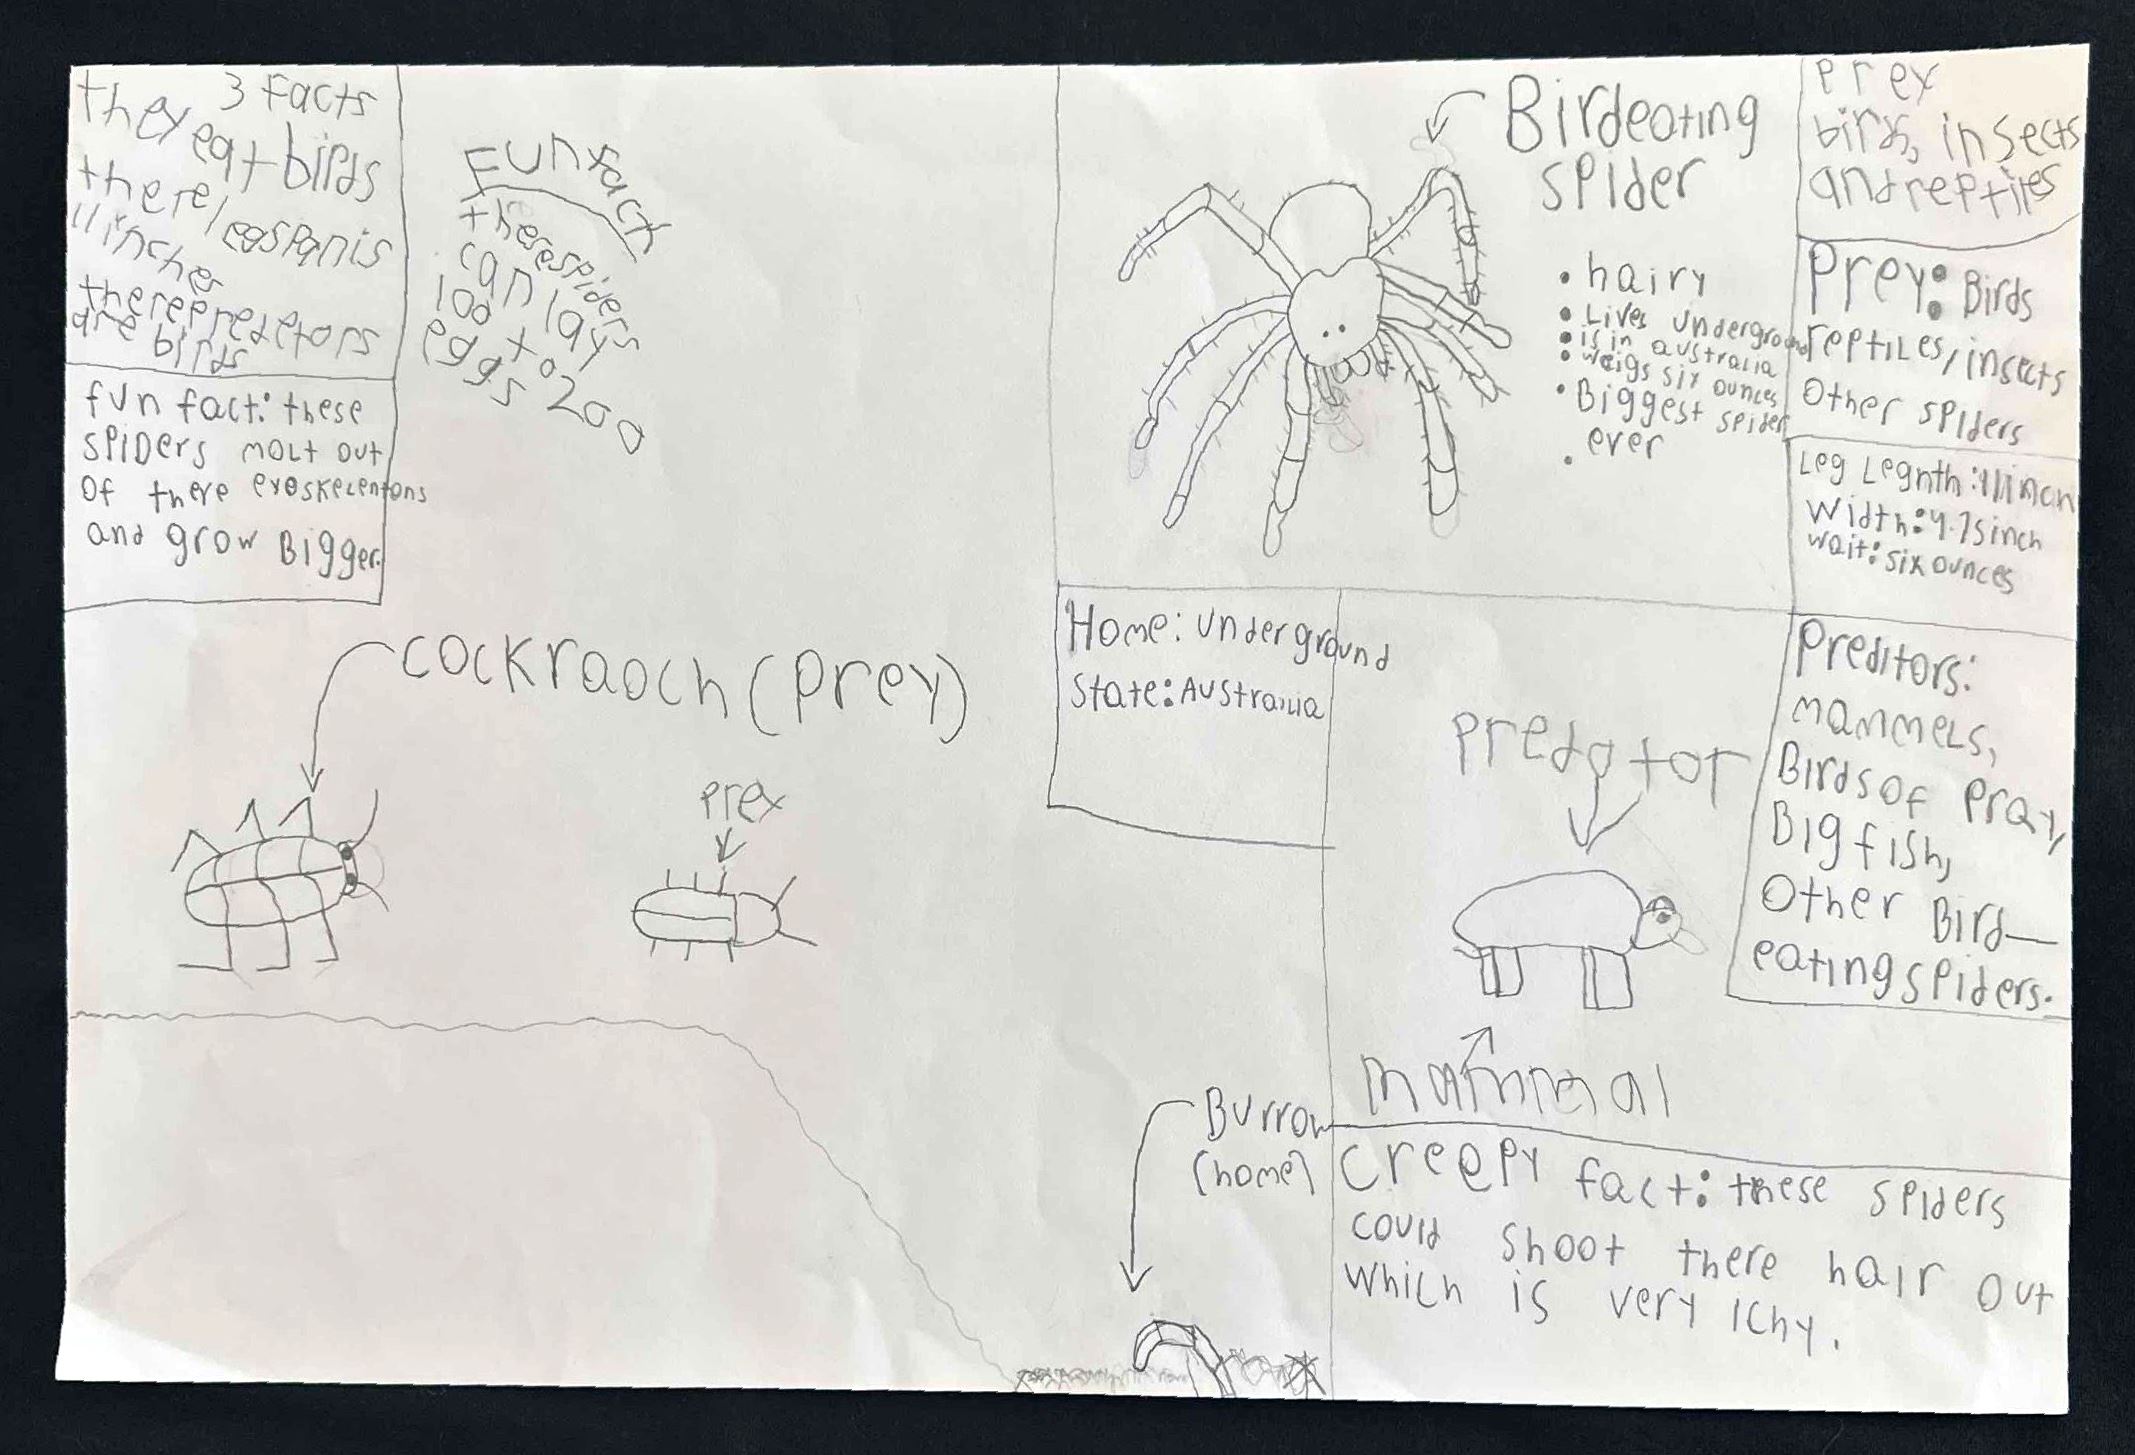 3 Facts
they eat birds
there legspanis
11 incher
there predetors
are birds
fun fact: these
spiders molt out
of there exoskelentons
and grow Bigger.
Fun fact
there spiders
can lay
100 to 200
eggs
Birdeating
spider
• hairy
• Lives underground
• is in australia
• weigs six ounces
• Biggest spider
ever
•
prey
birds, insects
and reptiles
Prey: Birds
reptiles, insects
Other spiders
Leg Legnth: 11 inch
Width: 4.75 inch
wait: six ounces
Home: underground
State: Australia
cockraoch (prey)
prey
predator
mammal
Preditors:
mammels,
Birds of pray,
Big fish,
Other Bird—
eating spiders.
Burrow
(home)
Creepy fact: these spiders
could shoot there hair out
which is very Ichy.